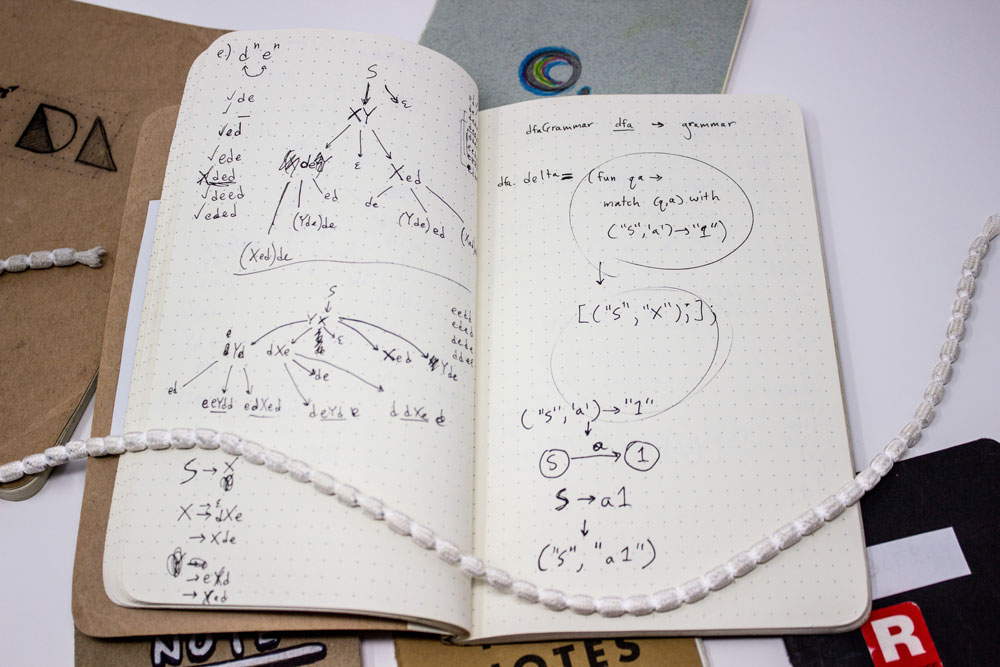 e.) dⁿeⁿ
✓de
✓ed
✓ede
X ded
✓deed
✓eded
S
ε
XY
de
ε
Xed
ed
de
(Yde)de
(Yde)ed
(Xed)de
S
YX
Yd
dXe
ε
Xed
Yde
de
ed
eeYdd
edXed
deYd
ddXe
S → X
X → ε
→ dXe
→ Xde
→ eXd
→ Xed
dfaGrammar dfa → grammar
dfa.delta = (fun qa →
match (q,a) with
("S",'a') → "1")
↓
[("S","X");];
("S",'a') → "1"
↓
a
S → 1
S → a1
↓
("S", "a1")
DA
NOTE
NOTES
R